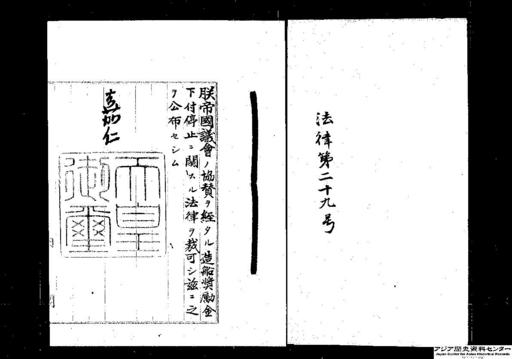 法律第二十九号
朕帝國議會ノ協賛ヲ経タル造船奨勵金
下付停止ニ関スル法律ヲ裁可シ茲ニ之
ヲ公布セシム
嘉仁
天皇
御璽
アジア歴史資料センター
Japan Center for Asian Historical Records